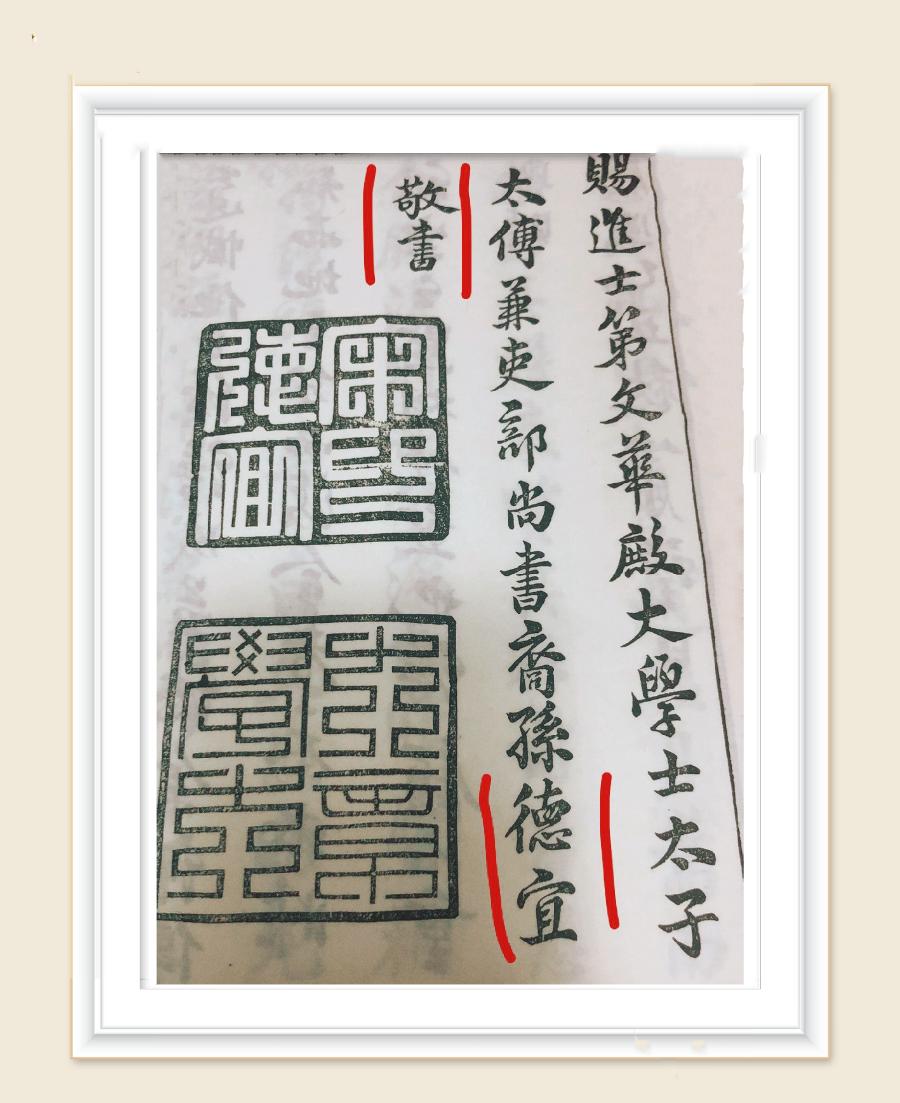 賜進士第文華殿大學士太子
太傅兼吏部尚書裔孫德宜
敬書
宋印
德宜